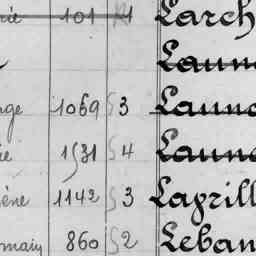 rie 101 Larch
Launa
age 1069 S 3 Launa
ie 1531 S 4 Launa
ène 1142 S 3 Laprill
omain 860 S 2 Leban